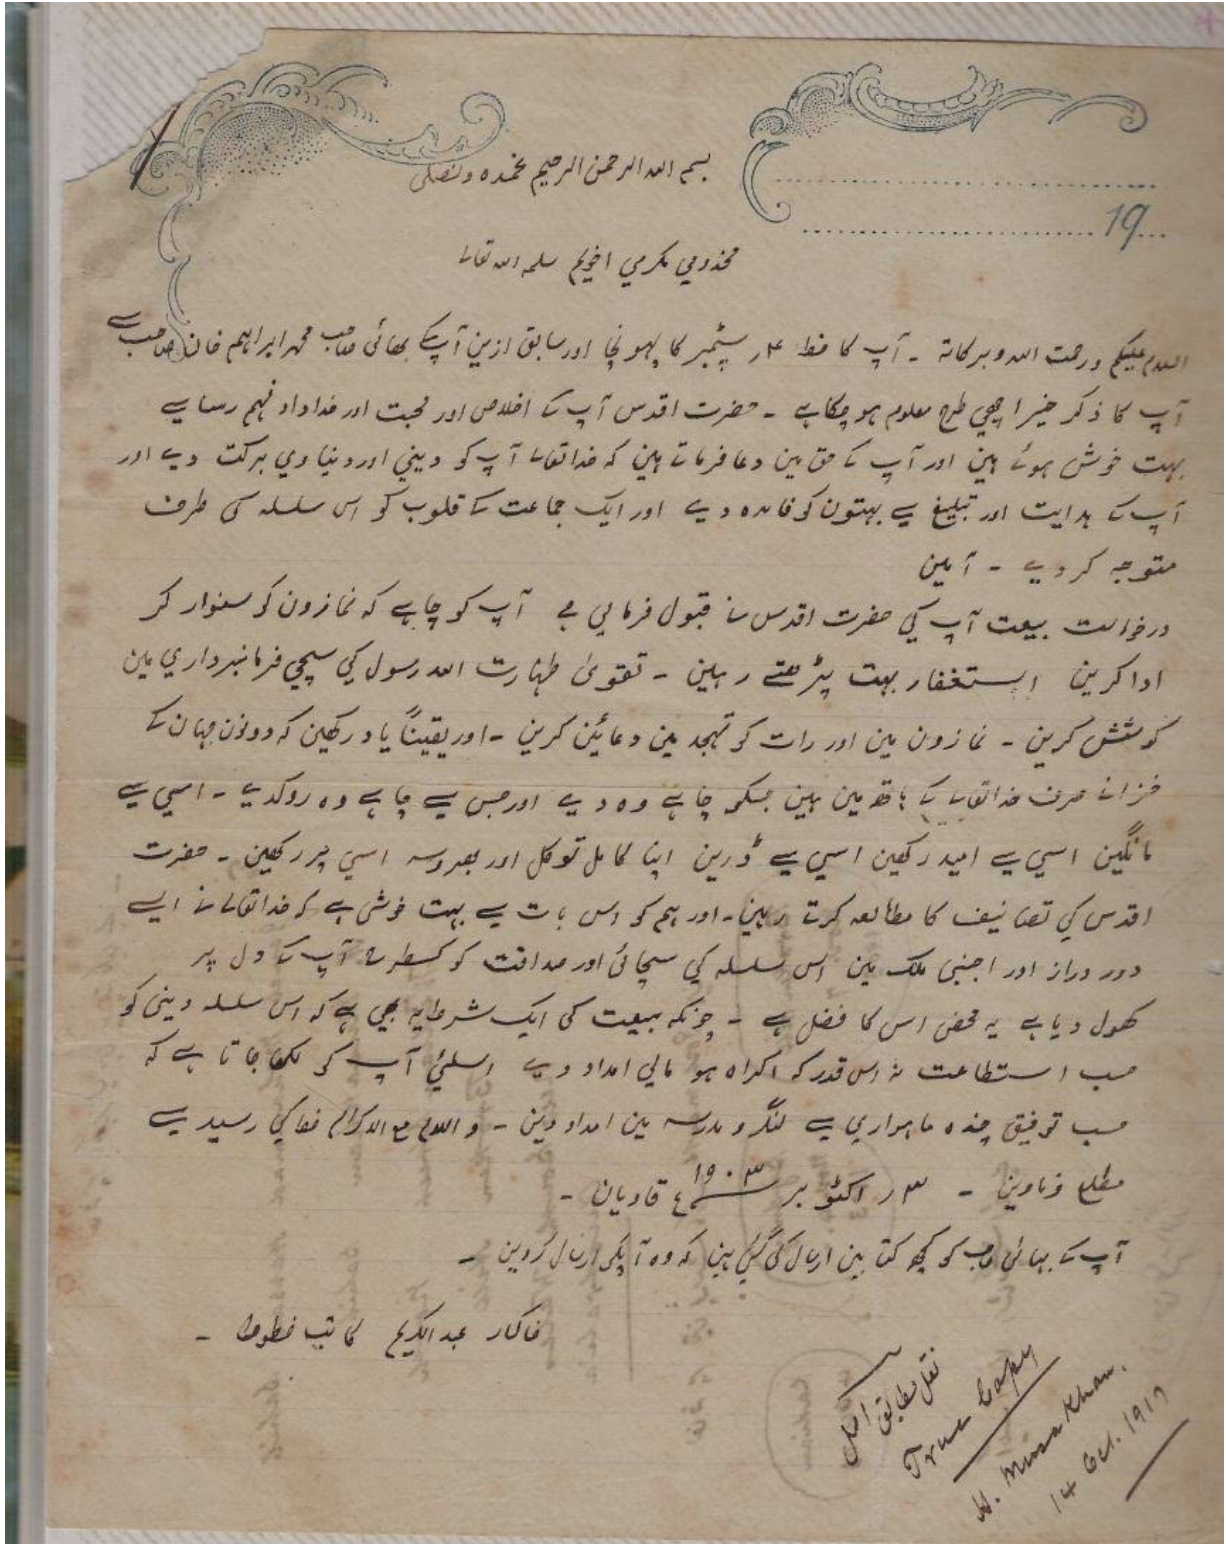 19
بسم اللہ الرحمن الرحیم نحمدہ ونصلی
مخدومي مکرمي اخویم سلمہ اللہ تعالے
السلام علیکم ورحمت اللہ وبرکاتہ ۔ آپ کا خط ۴ر ستمبر کا پہونچا اور سابق ازین آپکے بھائی صاحب محمد ابراہیم خان صاحب سے
آپ کا ذکر خیر اچھي طرح معلوم ہوچکاہے ۔ حضرت اقدس آپ کے اخلاص اور محبت اور خداداد فہم رسا سے
بہت خوش ہوئے ہین اور آپ کے حق مین دعا فرماتے ہین کہ خداتعالے آپ کو دیني اور دنیاوي برکت دیے اور
آپ کے ہدایت اور تبلیغ سے بہتون کو فائدہ دیے اور ایک جماعت کے قلوب کو اس سلسلہ کی طرف
متوجہ کردیے ۔ آمین
درخواست بیعت آپ کي حضرت اقدس نے قبول فرمالي ہے آپ کو چاہے کہ نمازون کو سنوار کر
ادا کرین استغفار بہت پڑھتے رہین ۔ تقوی طہارت اللہ رسول کي سچي فرمانبرداري مین
کوشش کرین ۔ نمازون مین اور رات کو تہجد مین دعائین کرین ۔ اور یقیناً یاد رکھین کہ دونون جہان کے
خزانے صرف خداتعالے کے ہاتھ مین ہین جسکو چاہے وہ دیے اور جس سے چاہے وہ روکدیے ۔ اسي سے
مانگین اسي سے امید رکھین اسي سے ڈرین اپنا کامل توکل اور بھروسہ اسي پر رکھین ۔ حضرت
اقدس کي تصانیف کا مطالعہ کرتے رہین ۔ اور ہم کو اس بات سے بہت خوشی ہے کہ خداتعالے نے ایسے
دور دراز اور اجنبی ملک مین اس سلسلہ کي سچائی اور صداقت کو کسطرح آپ کے دل پر
کھول دیاہے یہ محض اس کا فضل ہے ۔ چونکہ بیعت کی ایک شرط یہ بھي ہے کہ اس سلسلہ دینی کو
حسب استطاعت نہ اس قدر کہ اکراہ ہو مالي امداد دیے اسلئے آپ کو لکھا جاتا ہے کہ
حسب توفیق چندہ ماہواري سے لنگر و مدرسہ مین امداد دین ۔ والسلام مع الاکرام رسید سے
مطلع فرماوین ۔ ۳ر اکتوبر ۱۹۰۳ء قادیان ۔
آپ کے بھائی صاحب کو کچھ کتابین ارسال کی گئي ہین کہ وہ آپکو ارسال کردین ۔
خاکسار عبدالکریم کاتب خطوط ۔
نقل مطابق اصل
True Copy
H. Musa Khan.
14 Oct. 1917